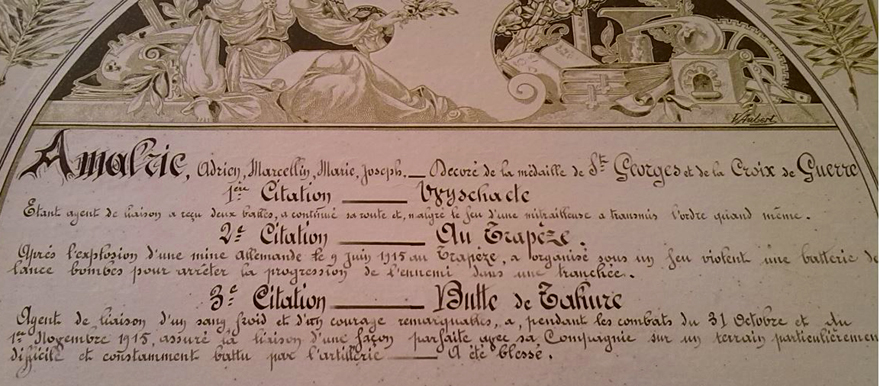 V. Aubert
Amalric, Adrien, Marcellin, Marie, Joseph. — Décoré de la médaille de St Georges et de la Croix de Guerre
1ère Citation — Wyschaete
Etant agent de liaison a reçu deux balles, a continué sa route et, malgré le feu d'une mitrailleuse a transmis l'ordre quand même.
2e Citation — Au Trapèze.
Après l'explosion d'une mine Allemande le 9 juin 1915 au Trapèze, a organisé sous un feu violent une batterie de
lance bombes pour arrêter la progression de l'ennemi dans une tranchée.
3e Citation — Butte de Tahure
Agent de liaison d'un sang froid et d'un courage remarquables, a, pendant les combats du 31 Octobre et du
1er Novembre 1915, assuré la liaison d'une façon parfaite avec sa Compagnie sur un terrain particulièrement
difficile et constamment battu par l'artillerie — A été blessé.